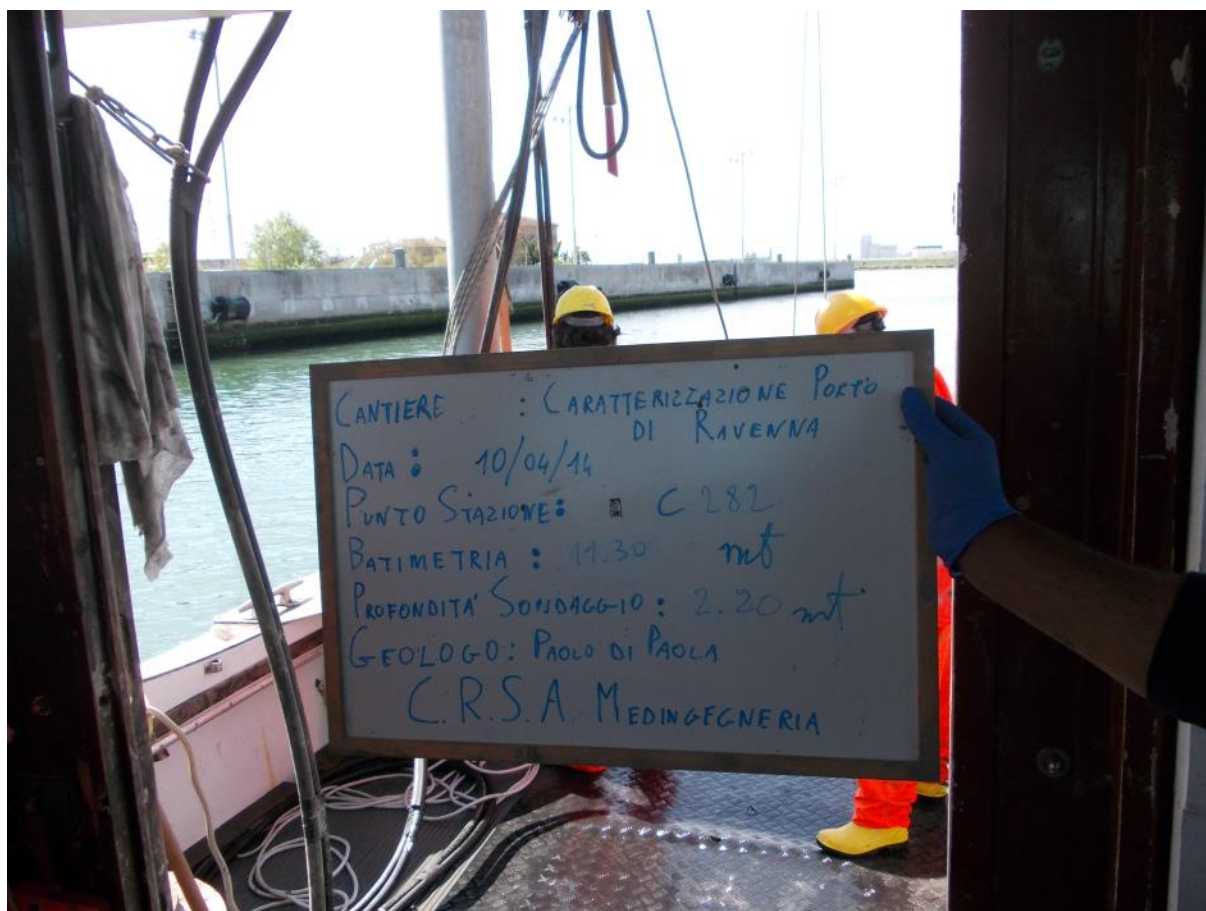 CANTIERE : CARATTERIZZAZIONE PORTO
DI RAVENNA
DATA : 10/04/14
PUNTO STAZIONE: C 282
BATIMETRIA : 11.30 mt
PROFONDITA' SONDAGGIO : 2.20 mt
GEOLOGO : PAOLO DI PAOLA
C.R.S.A. MEDINGEGNERIA